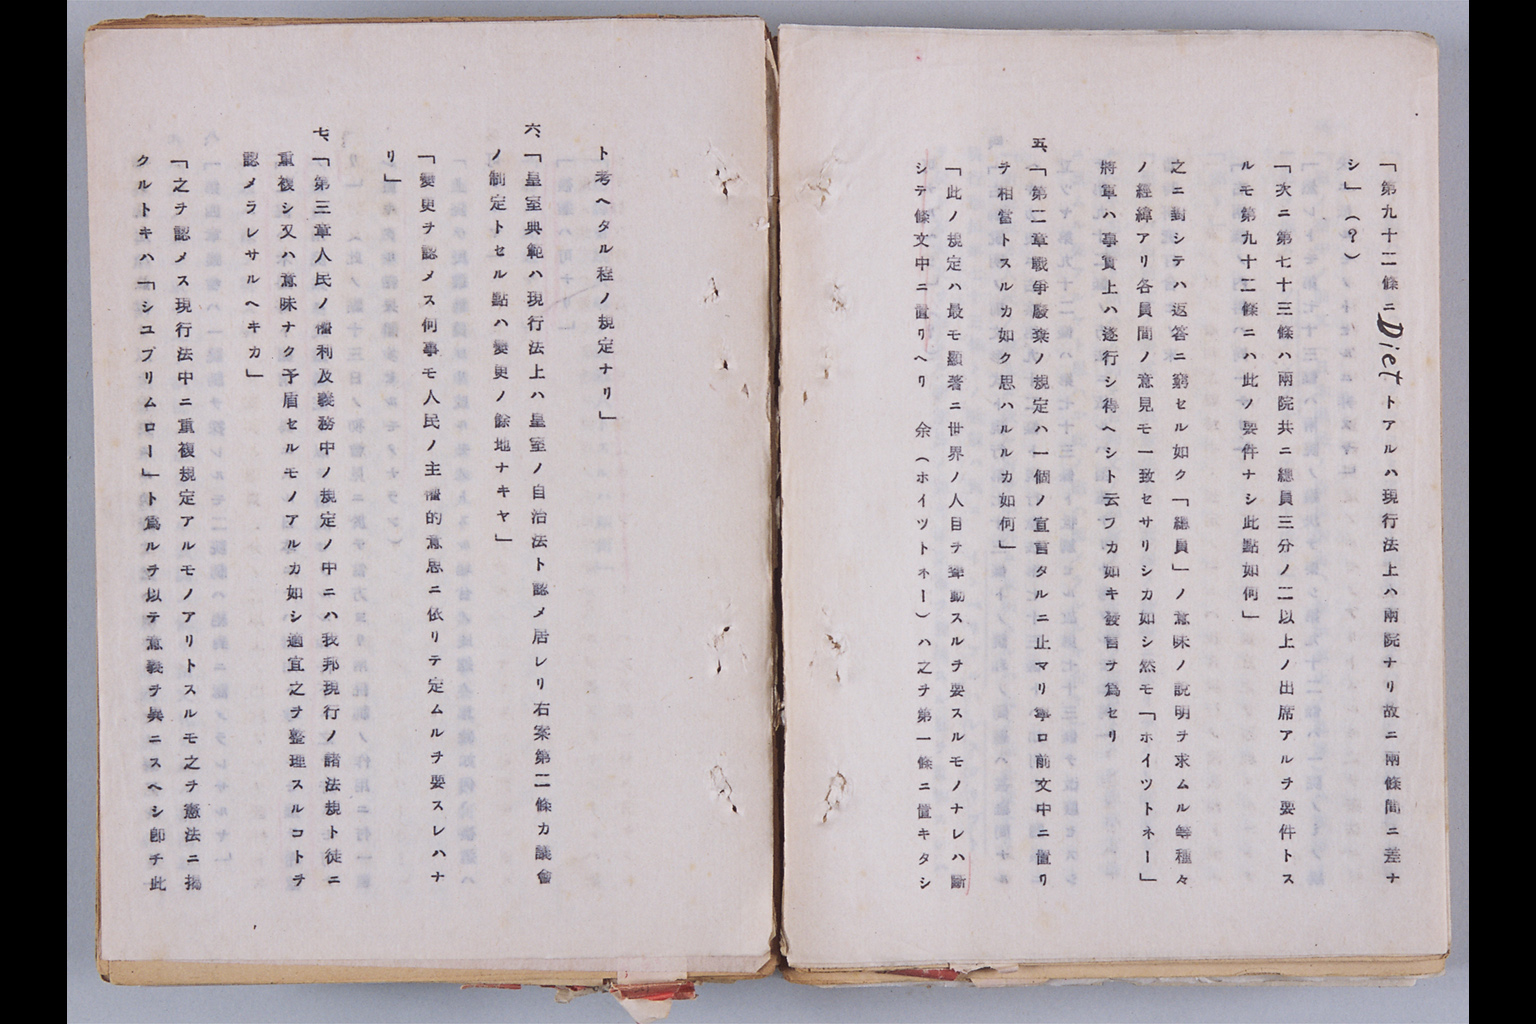 「第九十二條ニDietトアルハ現行法上ハ兩院ナリ故ニ兩條間ニ差ナ
シ」(？)
「次ニ第七十三條ハ兩院共ニ總員三分ノ二以上ノ出席アルヲ要件トス
ルモ第九十二條ニハ此ノ要件ナシ此點如何」
之ニ對シテハ返答ニ窮セル如ク「總員」ノ意味ノ說明ヲ求ムル等種々
ノ經緯アリ各員間ノ意見モ一致セサリシカ如シ然モ「ホイツトネー」
將軍ハ事實上ハ遂行シ得ヘシト云フカ如キ發言ヲ爲セリ
五、「第二章戰爭廢棄ノ規定ハ一個ノ宣言タルニ止マリ寧ロ前文中ニ置リ
ヲ相當トスルカ如ク思ハルルカ如何」
「此ノ規定ハ最モ顯著ニ世界ノ人目ヲ聳動スルヲ要スルモノナレハ斷
シテ條文中ニ置リヘリ　余(ホイツトネー)ハ之ヲ第一條ニ置キタシ
ト考ヘタル程ノ規定ナリ」
六、「皇室典範ハ現行法上ハ皇室ノ自治法ト認メ居レリ右案第二條カ議會
ノ制定トセル點ハ變更ノ餘地ナキヤ」
「變更ヲ認メス何事モ人民ノ主權的意思ニ依リテ定ムルヲ要スレハナ
リ」
七、「第三章人民ノ權利及義務中ノ規定ノ中ニハ我邦現行ノ諸法規ト徒ニ
重複シ又ハ意味ナク予盾セルモノアルカ如シ適宜之ヲ整理スルコトヲ
認メラレサルヘキカ」
「之ヲ認メス現行法中ニ重複規定アルモノアリトスルモ之ヲ憲法ニ揭
クルトキハ「シユプリムロー」ト爲ルヲ以テ意義ヲ異ニスヘシ卽チ此